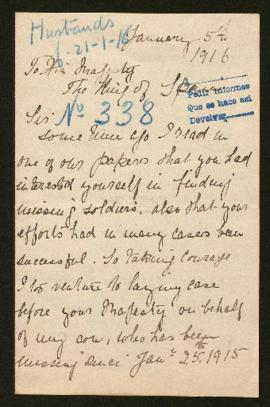 Husbands
6.21-1-16
January 5th
1916
To His Majesty
The King of Spain
Pedir informes
Que se hace asi
Devolver
Sir
Nº 338
Some time ago I read in
one of our papers that you had
interested yourself in finding
missing soldiers, also that your
efforts had in many cases been
successful. So taking courage
I venture to lay my case
before your Majesty on behalf
of my son, who has been
missing since Jany 25th 1915